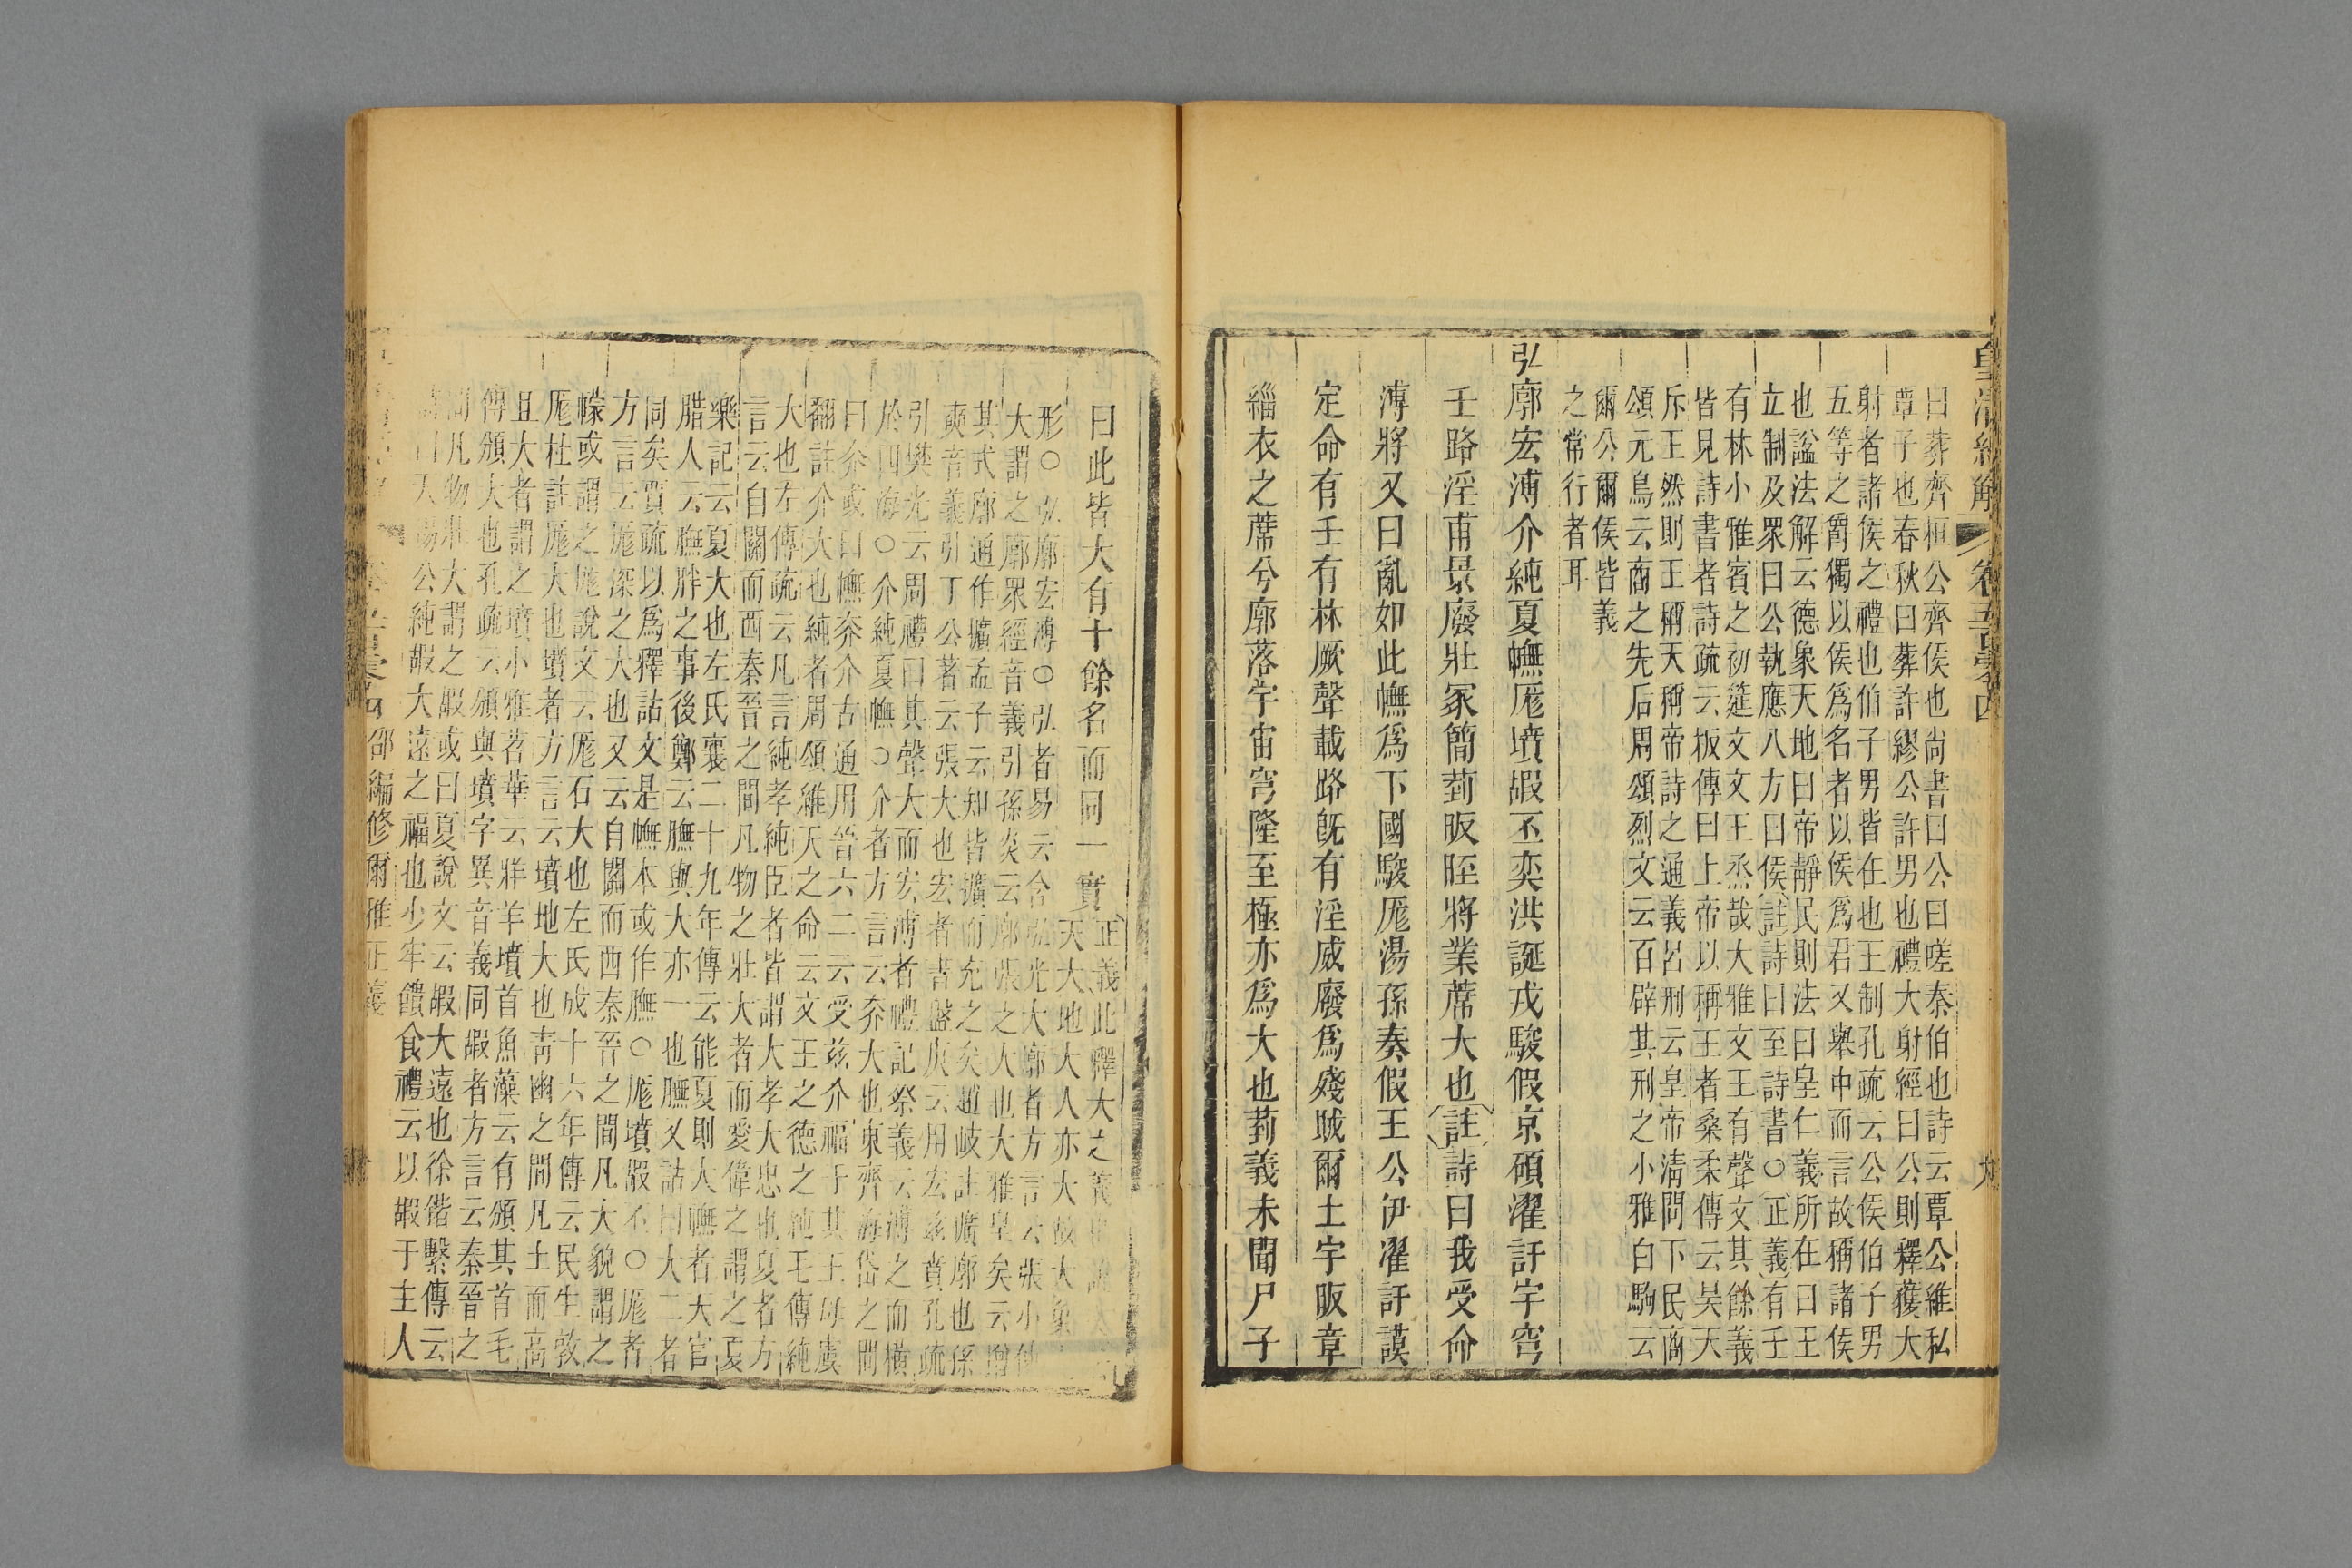 皇清經解 卷五百零四 九
曰葬齊桓公齊侯也尚書曰公曰嗟秦伯也詩云覃公維私
覃子也春秋曰葬許繆公許男也禮大射經曰公則釋獲大
射者諸侯之禮也伯子男皆在也王制孔疏云公侯伯子男
五等之爵獨以侯爲名者以侯爲君又舉中而言故稱諸侯
也諡法解云德象天地曰帝靜民則法曰皇仁義所在曰王
立制及眾曰公執應八方曰侯註詩曰至詩書○正義有壬
有林小雅賓之初筵文文王烝哉大雅文王有聲文其餘義
皆見詩書者詩疏云板傳曰上帝以稱王者桑柔傳云昊天
斥王然則王稱天稱帝詩之通義呂刑云皇帝清問下民商
頌元鳥云商之先后周頌烈文云百辟其刑之小雅白駒云
爾公爾侯皆義
之常行者耳
弘廓宏溥介純夏幠厖墳嘏丕奕洪誕戎駿假京碩濯訏宇穹
壬路淫甫景廢壯冢簡菿昄晊將業蓆大也註詩曰我受命
溥將又曰亂如此幠爲下國駿厖湯孫奏假王公伊濯訏謨
定命有壬有林厥聲載路旣有淫威廢爲殘賊爾土宇昄章
緇衣之蓆兮廓落宇宙穹隆至極亦爲大也菿義未聞尸子
曰此皆大有十餘名而同一實正義此釋大之義
天大地大人亦大故大象
形○弘廓宏溥○弘者易云含弘光大廓者方言云張小使
大謂之廓眾經音義引孫炎云廓張之大也大雅皇矣云增
其式廓通作擴孟子云知皆擴而充之矣趙岐註擴廓也孫
奭音義引丁公著云張大也宏者書盤庚云用宏茲賁孔疏
引樊光云周禮曰其聲大而宏溥者禮記祭義云溥之而橫
於四海○介純夏幠○介者方言云夰大也東齊海岱之間
曰夰或曰幠夰介古通用晉六二云受茲介福于其王母虞
翻註介大也純者周頌維天之命云文王之德之純毛傳純
大也左傳疏云凡言純孝純臣者皆謂大孝大忠也夏者方
言云自關而西秦晉之間凡物之壯大者而愛偉之謂之夏
樂記云夏大也左氏襄二十九年傳云能夏則大幠者天官
腊人云膴胖之事後鄭云膴與大亦一也膴又詁曰大二者
同矣賈疏以爲釋詁文是幠本或作膴○厖墳嘏丕○厖者
方言云厖深之大也又云自關而西秦晉之間凡大貌謂之
幪或謂之厖說文云厖石大也左氏成十六年傳云民生敦
厖杜註厖大也墳者方言云墳地大也靑幽之間凡土而高
且大者謂之墳小雅苕華云牂羊墳首魚藻云有頒其首毛
傳頒大也孔疏云頒與墳字異音義同嘏者方言云秦晉之
間凡物壯大謂之嘏或曰夏說文云嘏大遠也徐鍇繫傳云
詩曰天錫公純嘏大遠之福也少牢饋食禮云以嘏于主人
邵編修爾雅正義